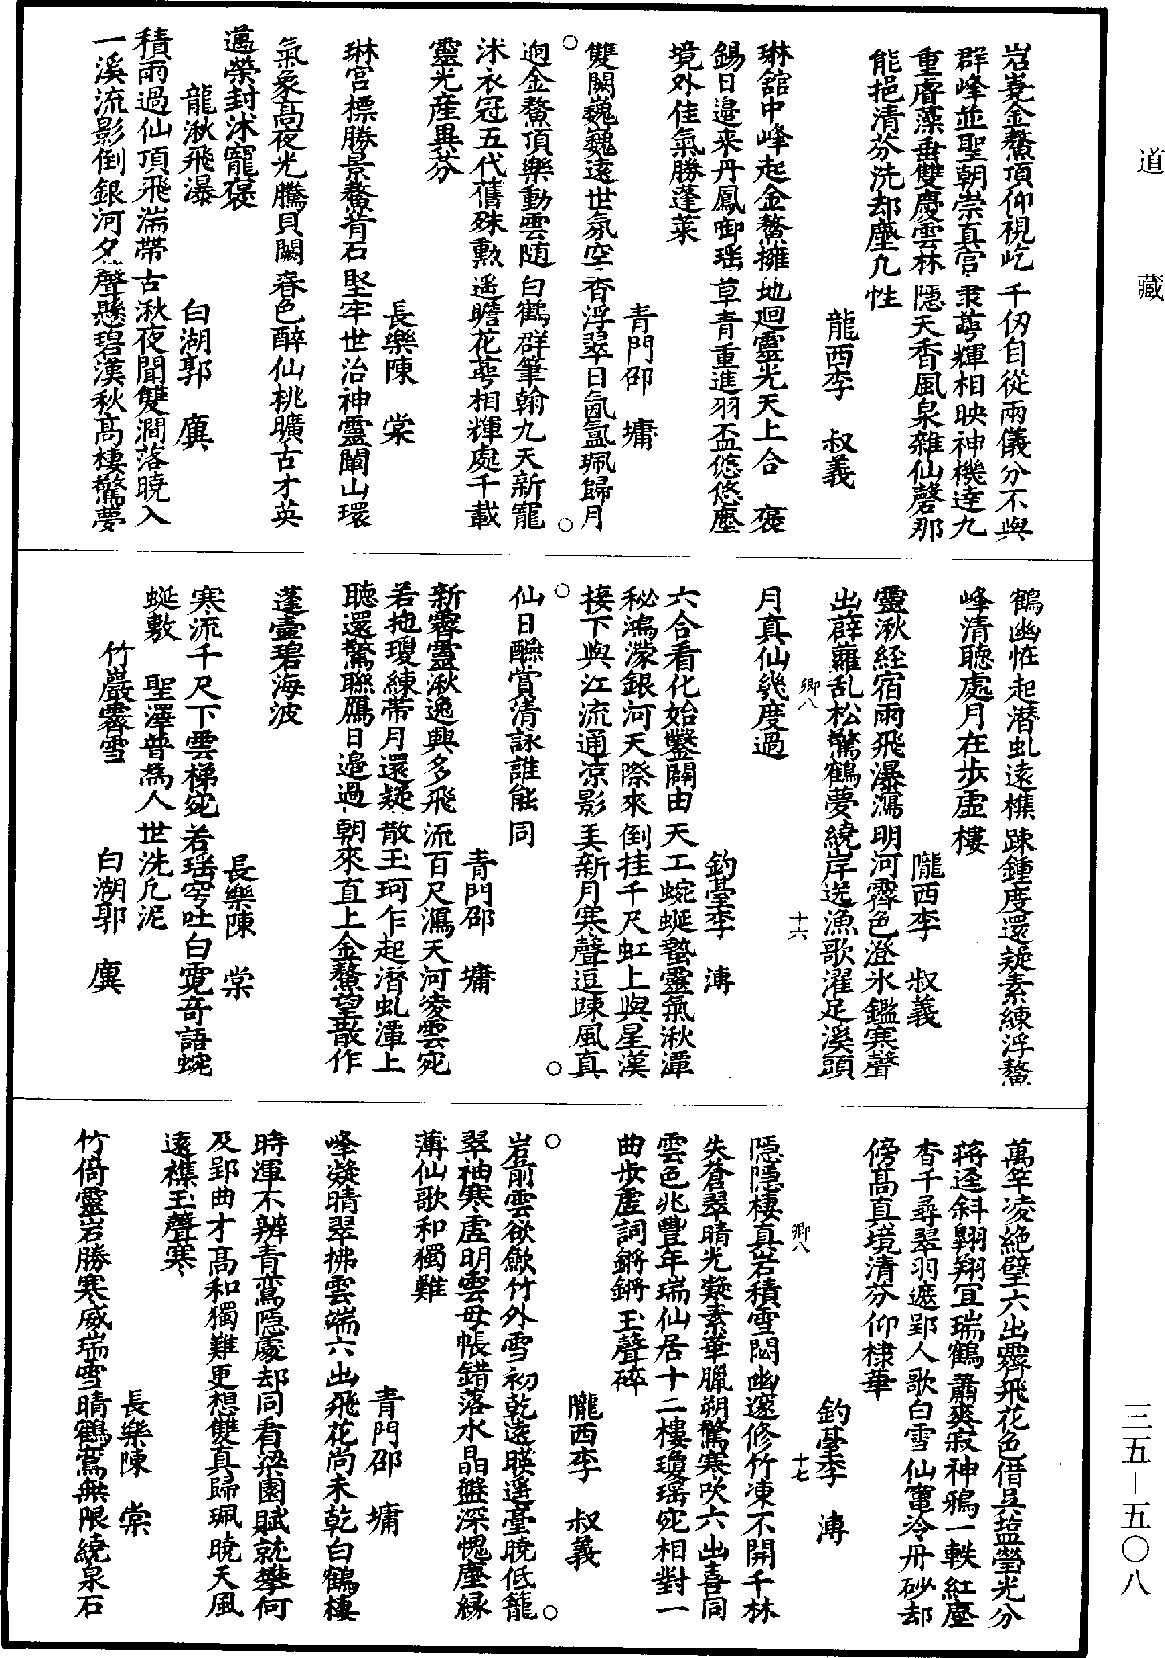 道藏
岧嶤金鰲頂仰視屹千仞自從兩儀分不與
群峰並聖朝崇真宫棣萼輝相映神機達九
重睿藻垂雙慶雲林隱天香風泉雜仙磬那
能挹清芬洗却塵凡性
龍西李　叔義
琳舘中峰起金鰲擁地廻靈光天上合　褒
錫日邉来丹鳳啣瑶草青重進羽盃悠悠塵
境外佳氣勝蓬莱
青門邵　墉
雙闕巍巍遠世氛空香浮翠日氤氳珮歸月
逈金鰲頂樂動雲随白鶴群筆翰九天新寵
沭衣冠五代舊殊勲遥瞻花萼相輝處千載
靈光産異芬
長樂陳　棠
琳宫標勝景鰲背石堅牢世治神靈闡山環
氣象髙夜光騰貝闕春色醉仙桃曠古才英
邁榮封沐寵褒
龍湫飛瀑
白湖郭　廙
積雨過仙頂飛湍帶古湫夜聞雙澗落曉入
一溪流影倒銀河夕聲懸碧漢秋髙棲驚夢
鶴幽恠起潜虬遠樵踈鍾度還疑素練浮鰲
峰清聽處月在步虚樓
隴西李　叔義
靈湫經宿雨飛瀑瀉明河霽色澄氷鑑寒聲
出薜蘿乱松驚鶴夢繞岸送漁歌濯足溪頭
月真仙幾度過
卿八　十六
釣臺李　溥
六合看化始鑿闢由天工蜿蜒蟄靈氣湫潭
秘鴻濛銀河天際來倒挂千尺虹上與星漢
接下與江流通凉影弄新月寒聲逗踈風真
仙日醼賞清詠誰能同
青門邵　墉
新霽靈湫逸興多飛流百尺瀉天河凌雲宛
若拖瓊練帯月還疑散玉珂乍起潜虬潭上
聽還驚聮鴈日邉過朝來直上金鰲望散作
蓬壷碧海波
長樂陳　棠
寒流千尺下雲梯宛若瑶穹吐白霓竒語蜿
蜒敷　聖澤普為人世洗凡泥
竹巖霽雪
白湖郭　廙
萬竿凌絶壁六出霽飛花色借吴塩瑩光分
蒋逕斜翺翔冝瑞鶴蕭爽寂神鴉一軼紅塵
杳千尋翠羽遮郢人歌白雪仙竃冷丹砂却
傍髙真境清芬仰棣華
釣臺李　溥
卿八　十七
隠隠棲真岩積雪閟幽邃修竹凍不開千林
失蒼翠晴光凝素華臘朔驚寒吹六出喜同
雲色兆豐年瑞仙居十二樓瓊瑶宛相對一
曲步虚詞鏘鏘玉聲碎
隴西李　叔義
岩前雲欲歛竹外雪初乾遠暎遥臺曉低籠
翠袖寒虚明雲母帳錯落水晶盤深愧塵縁
薄仙歌和獨難
青門邵　墉
峰凝晴翠拂雲端六出飛花尚未乾白鶴棲
時渾不辨青鸞隠處却同看梁園賦就攀何
及郢曲才髙和獨難更想雙真歸珮曉天風
遠樵玉聲寒
長樂陳　棠
竹倚靈岩勝寒威瑞雪晴鶴窩無限繞泉石
三五－五〇八